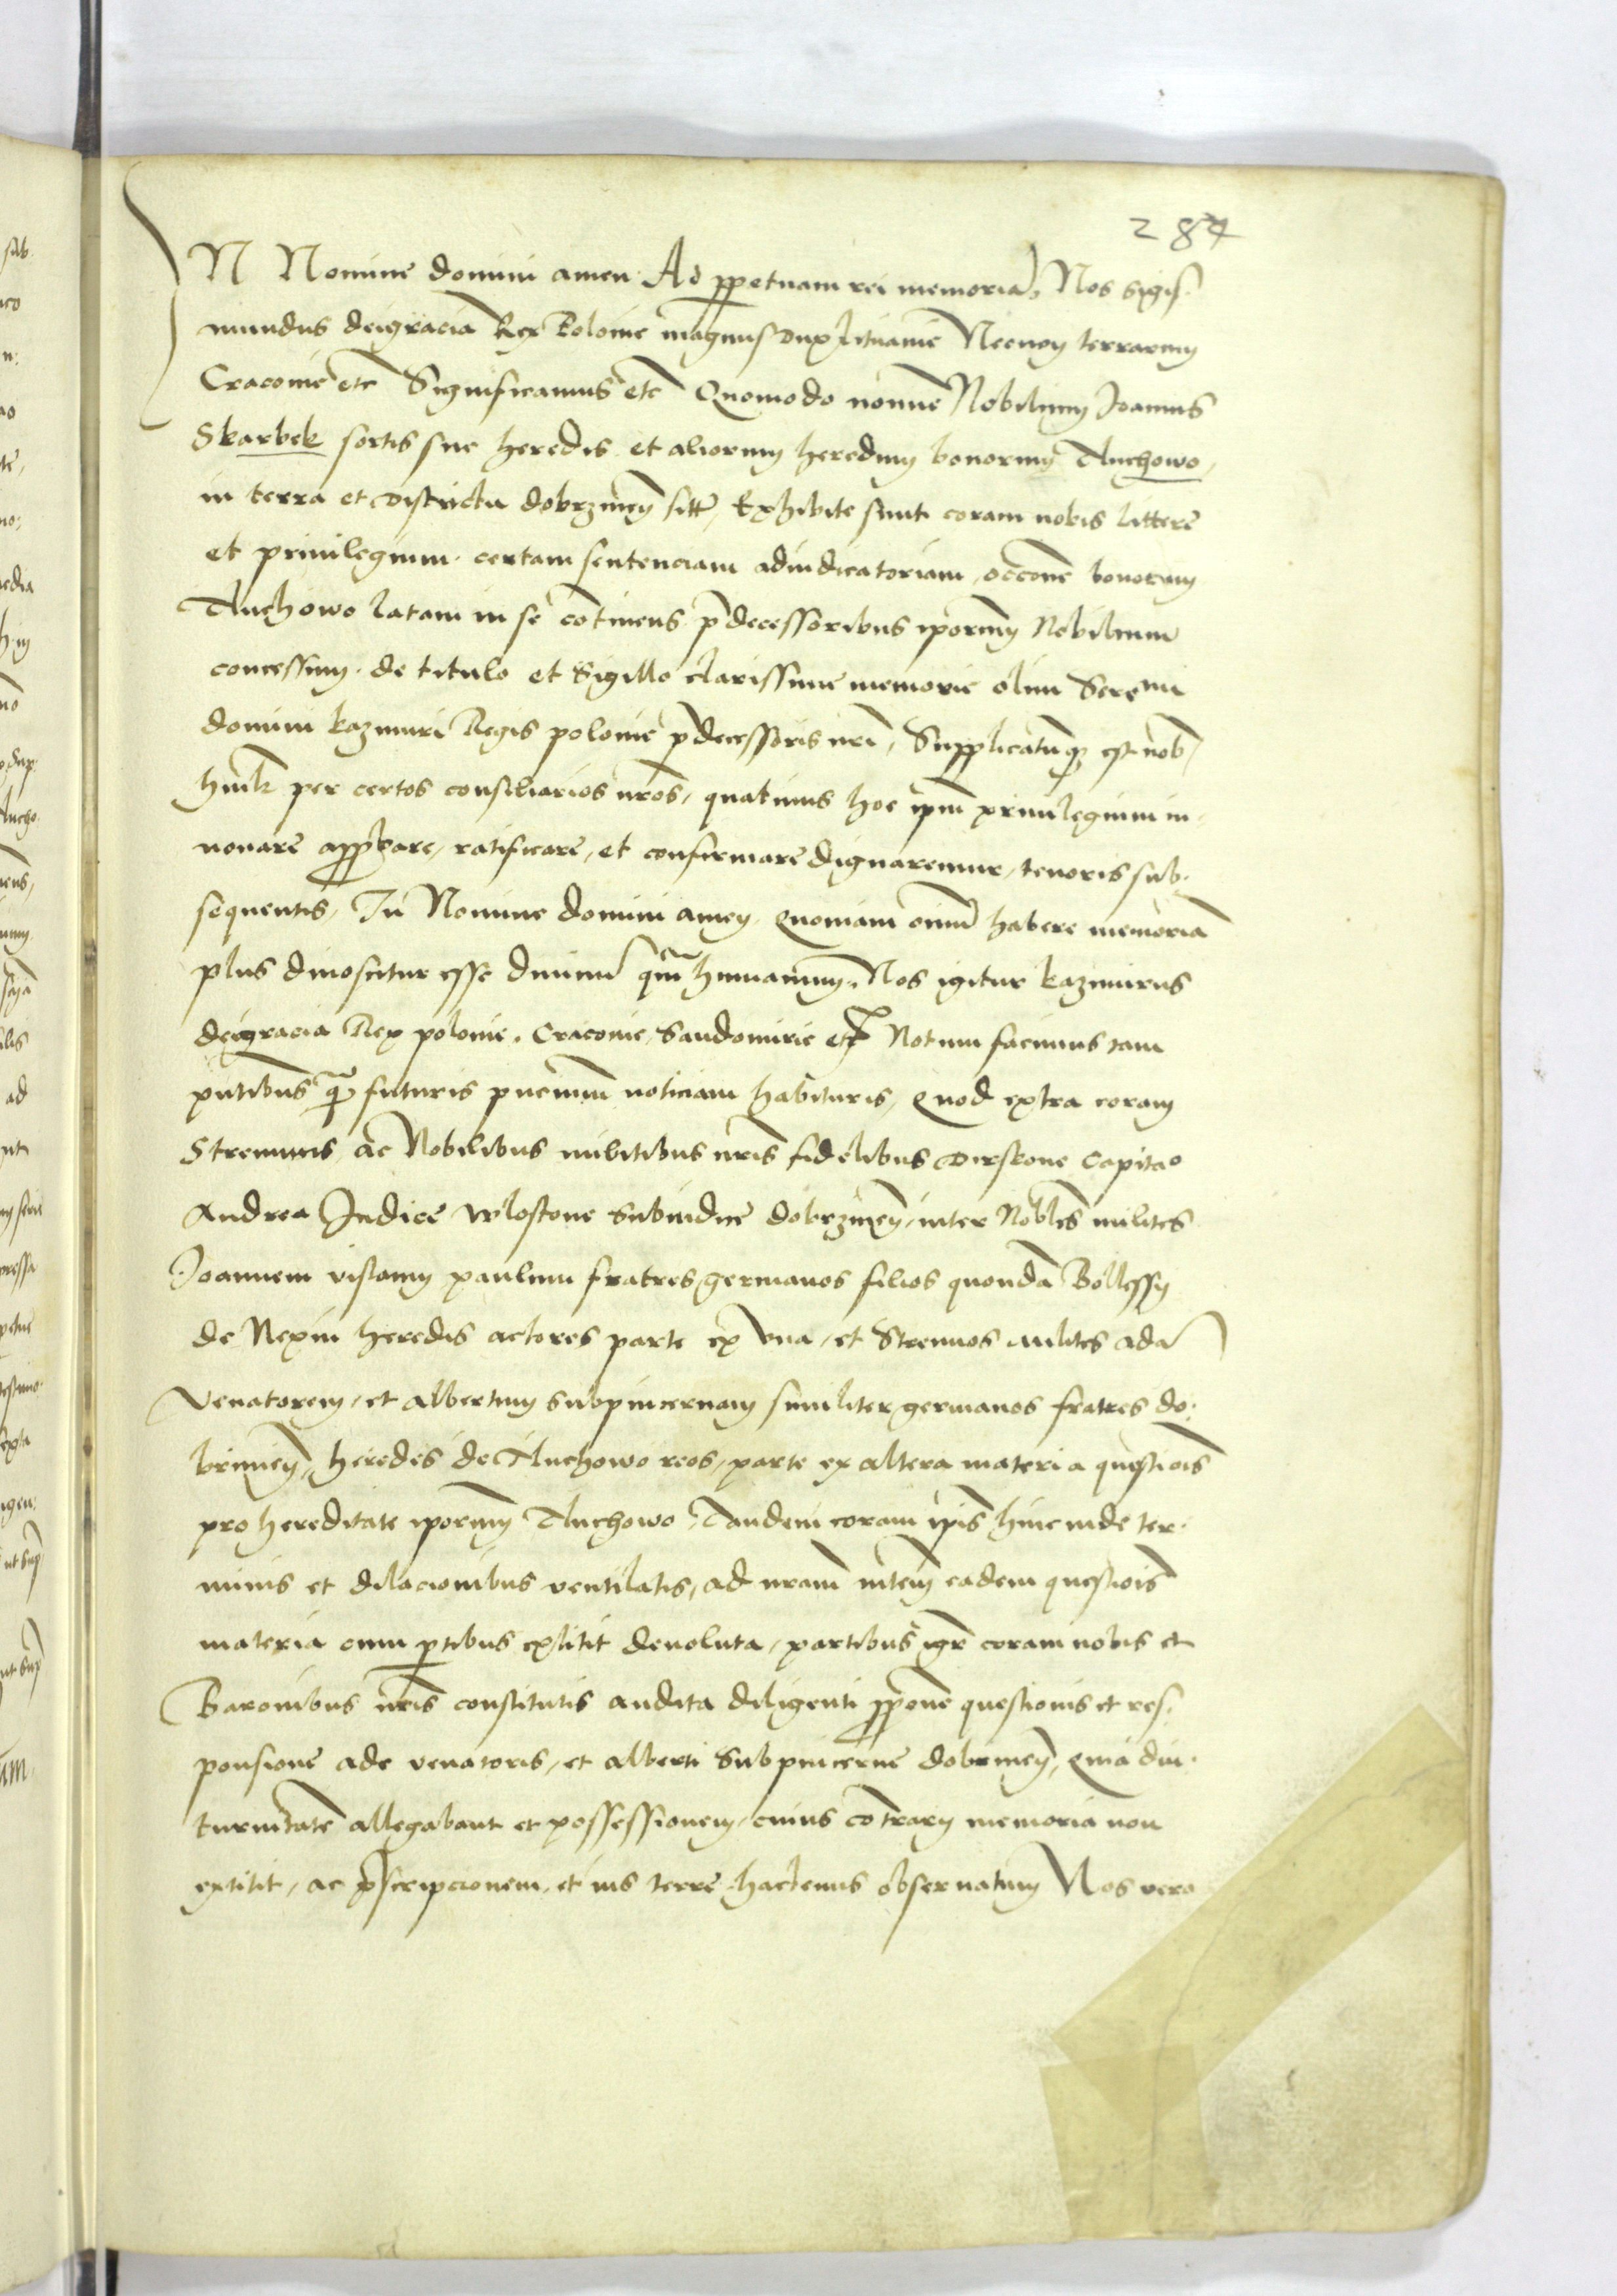 284
IN Nomine domini amen Ad ppetuam rei memoriā, Nos Sigis¬
mundus deigracia Rex Polonie magnus dux Lituanie Necnon terrarum
Cracovie etc Significamus etc Quomodo nomine Nobilium Joannis
Skarbek sortis sue heredis et aliorum heredum bonorum Thuchowo,
in terra et districtu dobrzinen̄ sitt̄, Exhibite sunt coram nobis littere
et privilegium certam sentenciam adiudicatoriam, occōne bonorum
Thuchowo latam in se cōtinens p̄decessoribus ip̄orum Nobilium
concessum de titulo et Sigillo clarissime memorie olim Sereni
domini kazimiri Regis polonie p̄decessoris nr̄i, Supplicatumq̄ est nob̄
humīlr per certos consiliarios nr̄os, quatinus hoc ip̄m privilegium in¬
novare approbare, ratificare, et confirmare dignaremur, tenoris sub¬
sequentis, In Nomine domini amen, quoniam oīm̄ habere memoriā
plus dinoscitur esse divinū qm̄ humanum, Nos igitur kazimirus
deigracia Rex polonie, Cracovie, Sandomirie etc̄ Notum facimus tam
pn̄tibus q̄ futuris pn̄cium noticiam habituris, quod exorta coram
Strenuis ac Nobilibus militibus nr̄is fidelibus Dirskone Capitāo
Andrea Judice Wlostone Subiudice dobrzinen̄, inter Nobl̄es milites
Joannem vistomy paulum fratres germanos filios quondā Bollessy
de Nexin heredis actores parte ex una, et Strenuos milites adā
Venatorem, et Albertum Subpincernam similiter germanos fratres do¬
brinien̄, heredes de Thuchowo reos, parte ex altera materia questiōis
pro hereditate ip̄orum Thuchowo, Tandem coram ip̄is hincinde ter¬
minis et dilacionibus ventilatis, ad nr̄am int̄em̄ eadem questiōis
materia cum ptibus extitit devoluta, partibus igr̄ coram nobis et
Baronibus nr̄is constitutis audita diligenti pp̄one questionis et res¬
ponsione ade venatoris, et alberti Subpincerne dobrinen̄, quia diu¬
turnitatē allegabant et possessionem, cuius cōtrarij memoria non
extitit, ac p̄scripcionem, et ius terre hactenus observatum Nos vero